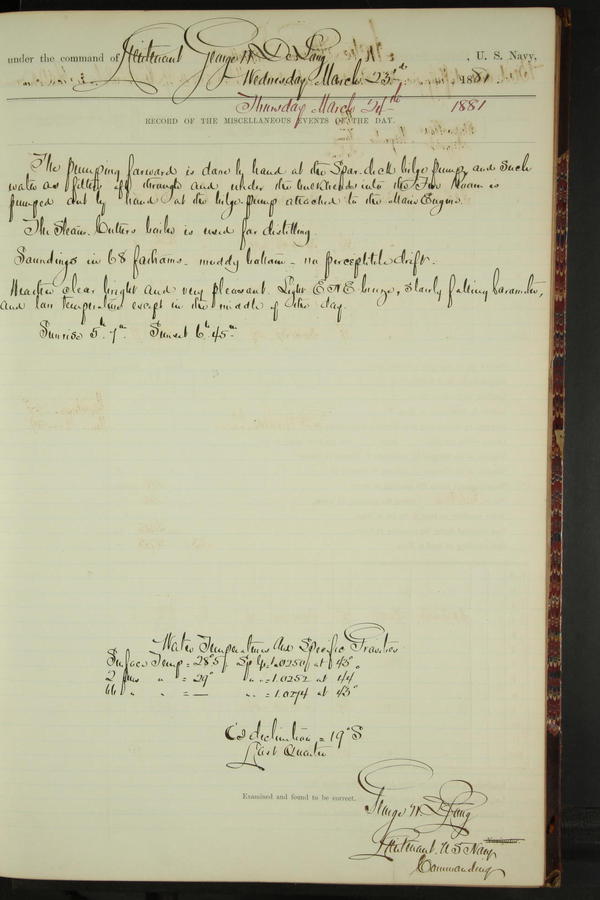 under the command of Lieutenant George W. De Long , U. S. Navy,
Wednesday March 23rd 1881.
Thursday March 24th 1881
RECORD OF THE MISCELLANEOUS EVENTS OF THE DAY.
The pumping forward is done by hand at the Spar-deck bilge pump, and such
water as filters aft through and under the bulkheads into the Fire Room is
pumped out by hand at the bilge pump attached to the Main Engine.
The Steam-Cutters boiler is used for distilling.
Soundings in 68 fathoms - muddy bottom - no perceptible drift.
Weather clear bright and very pleasant. Light E N E breeze, slowly falling barometer,
and low temperature except in the middle of the day.
Sunrise 5h. 7m Sunset 6h. 45m
Water Temperatures and Specific Gravities
Surface Temp = 28°5 Sp Gr = 1.0250 at 45°
2 fms " = 29° " " = 1.0252 at 44
66 " " = — " " = 1.0274 at 43°
☾'s declination = 19° S
Last Quarter
Examined and found to be correct.
George W. De Long
Navigator.
Lieutenant. U S Navy
Commanding